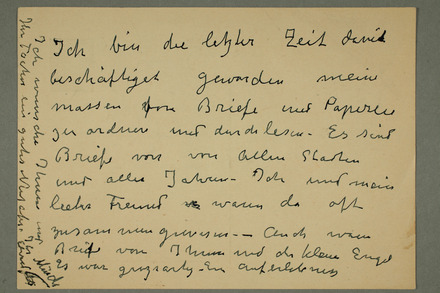 Ich bin die letzter Zeit damit
beschäftiget geworden mein
massen von Briefe und Papieren
zu ordnen und durchlesen - Es sind
Briefe von von allen Staaten
und allen Jahren - Ich und mein
Freund waren da oft
zusammengewesen - Auch waren
Brief von Ihnen und die kleine Engel
Es war grossartig - Ein
Ich wünsche Ihnen und
Ihr Tochter ein gutes